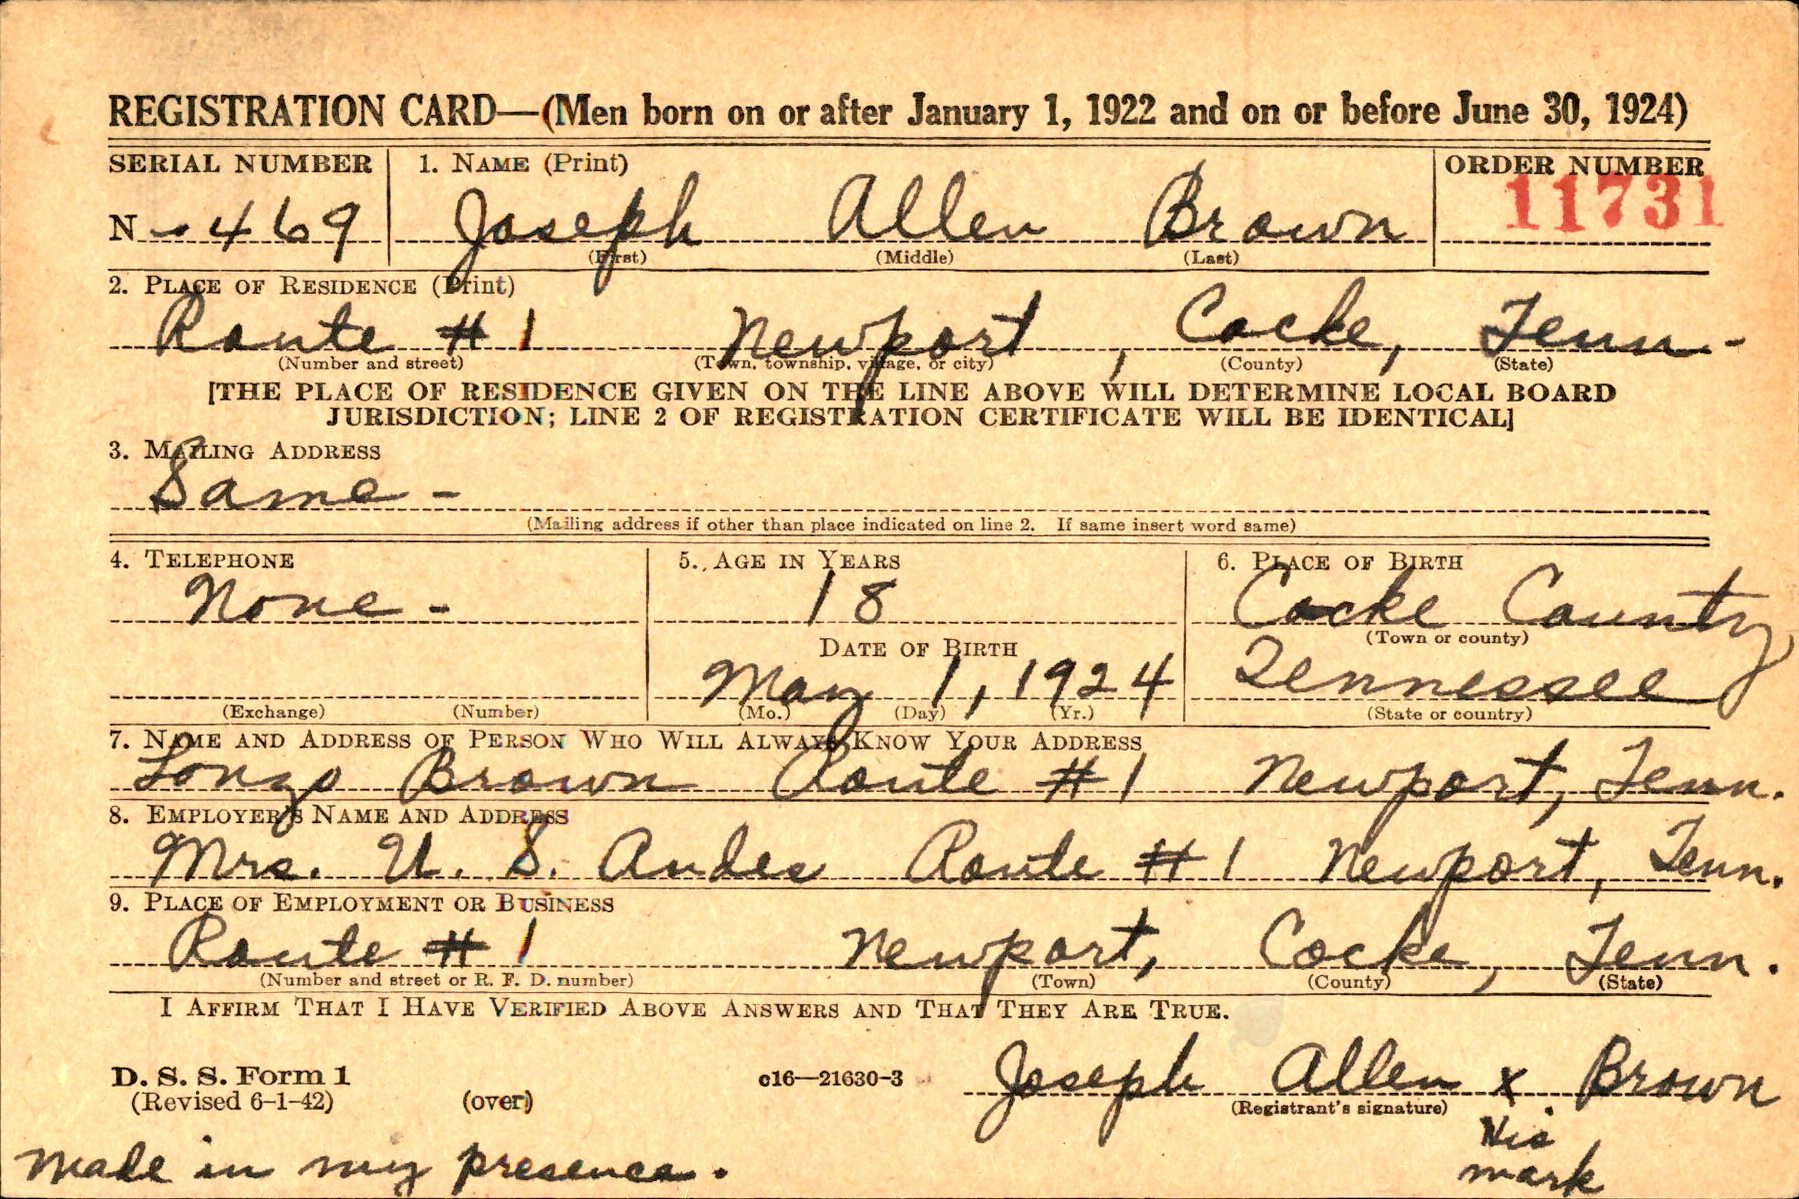 REGISTRATION CARD—(Men born on or after January 1, 1922 and on or before June 30, 1924)
SERIAL NUMBER 1. NAME (Print) ORDER NUMBER
N 469 Joseph Allen Brown 11731
(First) (Middle) (Last)
2. PLACE OF RESIDENCE (Print)
Route # 1 Newport, Cocke, Tenn-
(Number and street) (Town, township, village, or city) (County) (State)
[THE PLACE OF RESIDENCE GIVEN ON THE LINE ABOVE WILL DETERMINE LOCAL BOARD
JURISDICTION; LINE 2 OF REGISTRATION CERTIFICATE WILL BE IDENTICAL]
3. MAILING ADDRESS
Same -
(Mailing address if other than place indicated on line 2. If same insert word same)
4. TELEPHONE 5. AGE IN YEARS 6. PLACE OF BIRTH
None - 18 Cocke County
(Town or county)
DATE OF BIRTH
May 1, 1924 Tennessee
(Exchange) (Number) (Mo.) (Day) (Yr.) (State or country)
7. NAME AND ADDRESS OF PERSON WHO WILL ALWAYS KNOW YOUR ADDRESS
Lonzo Brown Route # 1 Newport, Tenn.
8. EMPLOYER'S NAME AND ADDRESS
Mrs. U. S. Andes Route # 1 Newport, Tenn.
9. PLACE OF EMPLOYMENT OR BUSINESS
Route # 1 Newport, Cocke, Tenn.
(Number and street or R. F. D. number) (Town) (County) (State)
I AFFIRM THAT I HAVE VERIFIED ABOVE ANSWERS AND THAT THEY ARE TRUE.
D. S. S. Form 1 c16—21630-3 Joseph Allen x Brown
(Revised 6-1-42) (over) (Registrant's signature)
His
mark
Made in my presence.